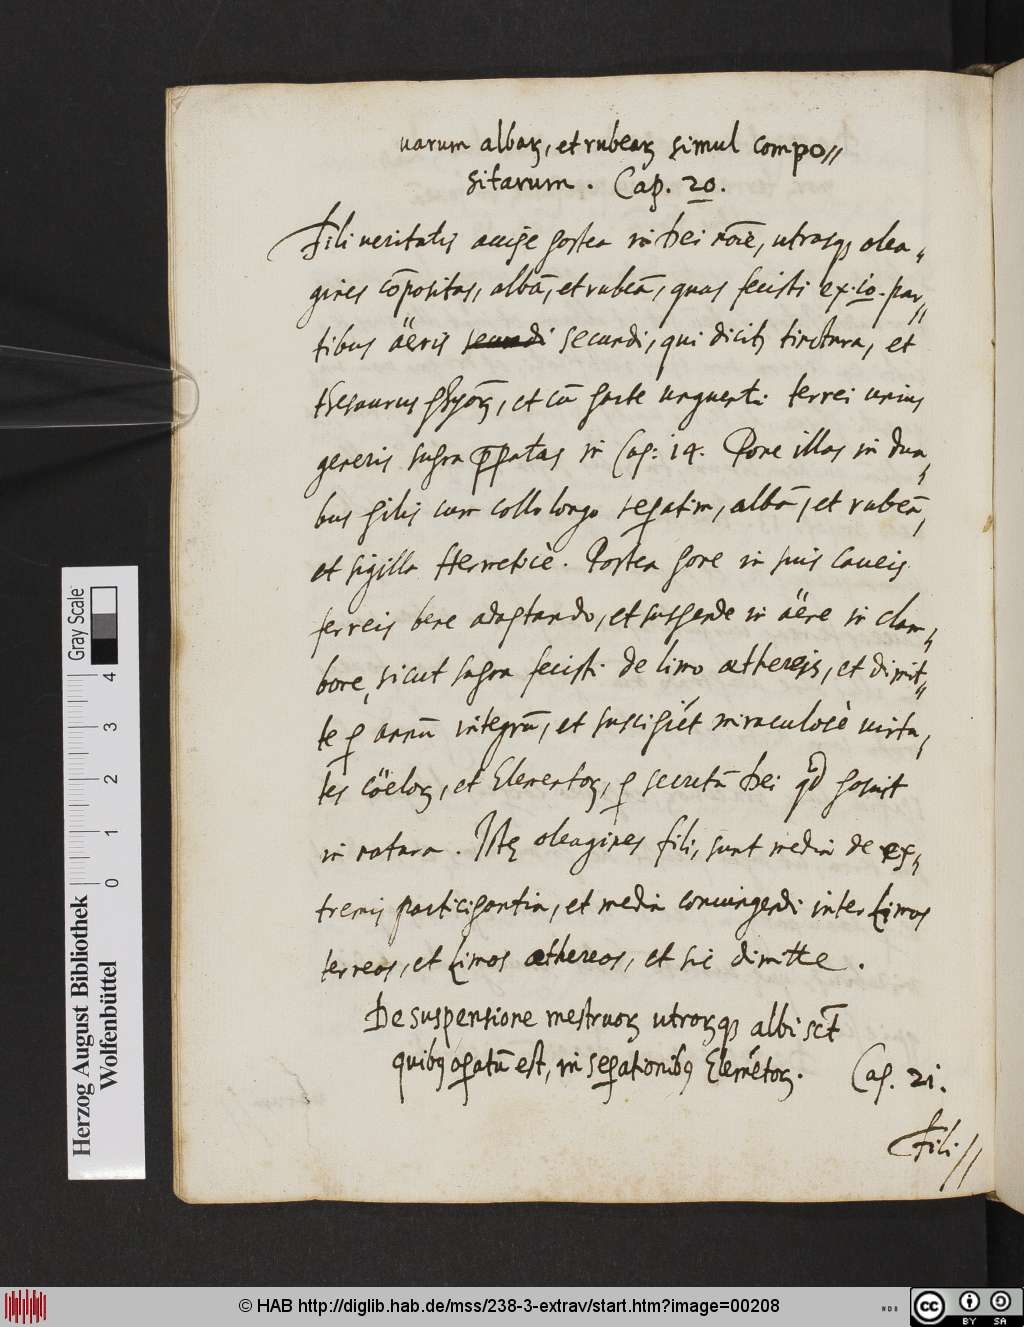 uarum albaꝝ, et rubeaꝝ simul compo//
sitarum. Cap. 20.
Fili ueritatis accipe postea in Dei nōie, utrasqꝫ olea„
gines cōpositas, albā, et rubeā, quas fecisti ex .io. par„
tibus äeris secundi secundi, qui dicitꝝ tinctura, et
thesaurus phyōꝝ, et cū parte unguenti terrei unius
generis supra p̄paratas in Cap: i4. Pone illas in dua„
bus pilis cum collo longo sepatim, albā, et rubeā,
et sigilla Hermeticè. Postea pone in suis caueis
ferreis bene adaptando, et suspende in äere in clam„
bore, sicut supra fecisti de limo æthereis, et dimit„
te ꝑ annū integrū, et suscipiet miraculosè uirtu„
tes cöeloꝝ, et Elementoꝝ, ꝑ secretū Dei qd posuit
in natura. Istę oleagines fili, sunt media de ex„
tremis participantia, et media coniungendi inter Limos
terreos, et Limos æthereos, et sic dimitte.
De suspensione mestruoꝝ utroꝝqꝫ albi sct
quibꝫ opatū est, in sepationibꝫ Elemétoꝝ. Cap. 2i.
Fili//
Herzog August Bibliothek
Wolfenbüttel
0 1 2 3 4
Gray Scale
© HAB http://diglib.hab.de/mss/238-3-extrav/start.htm?image=00208
NDB
cc BY SA